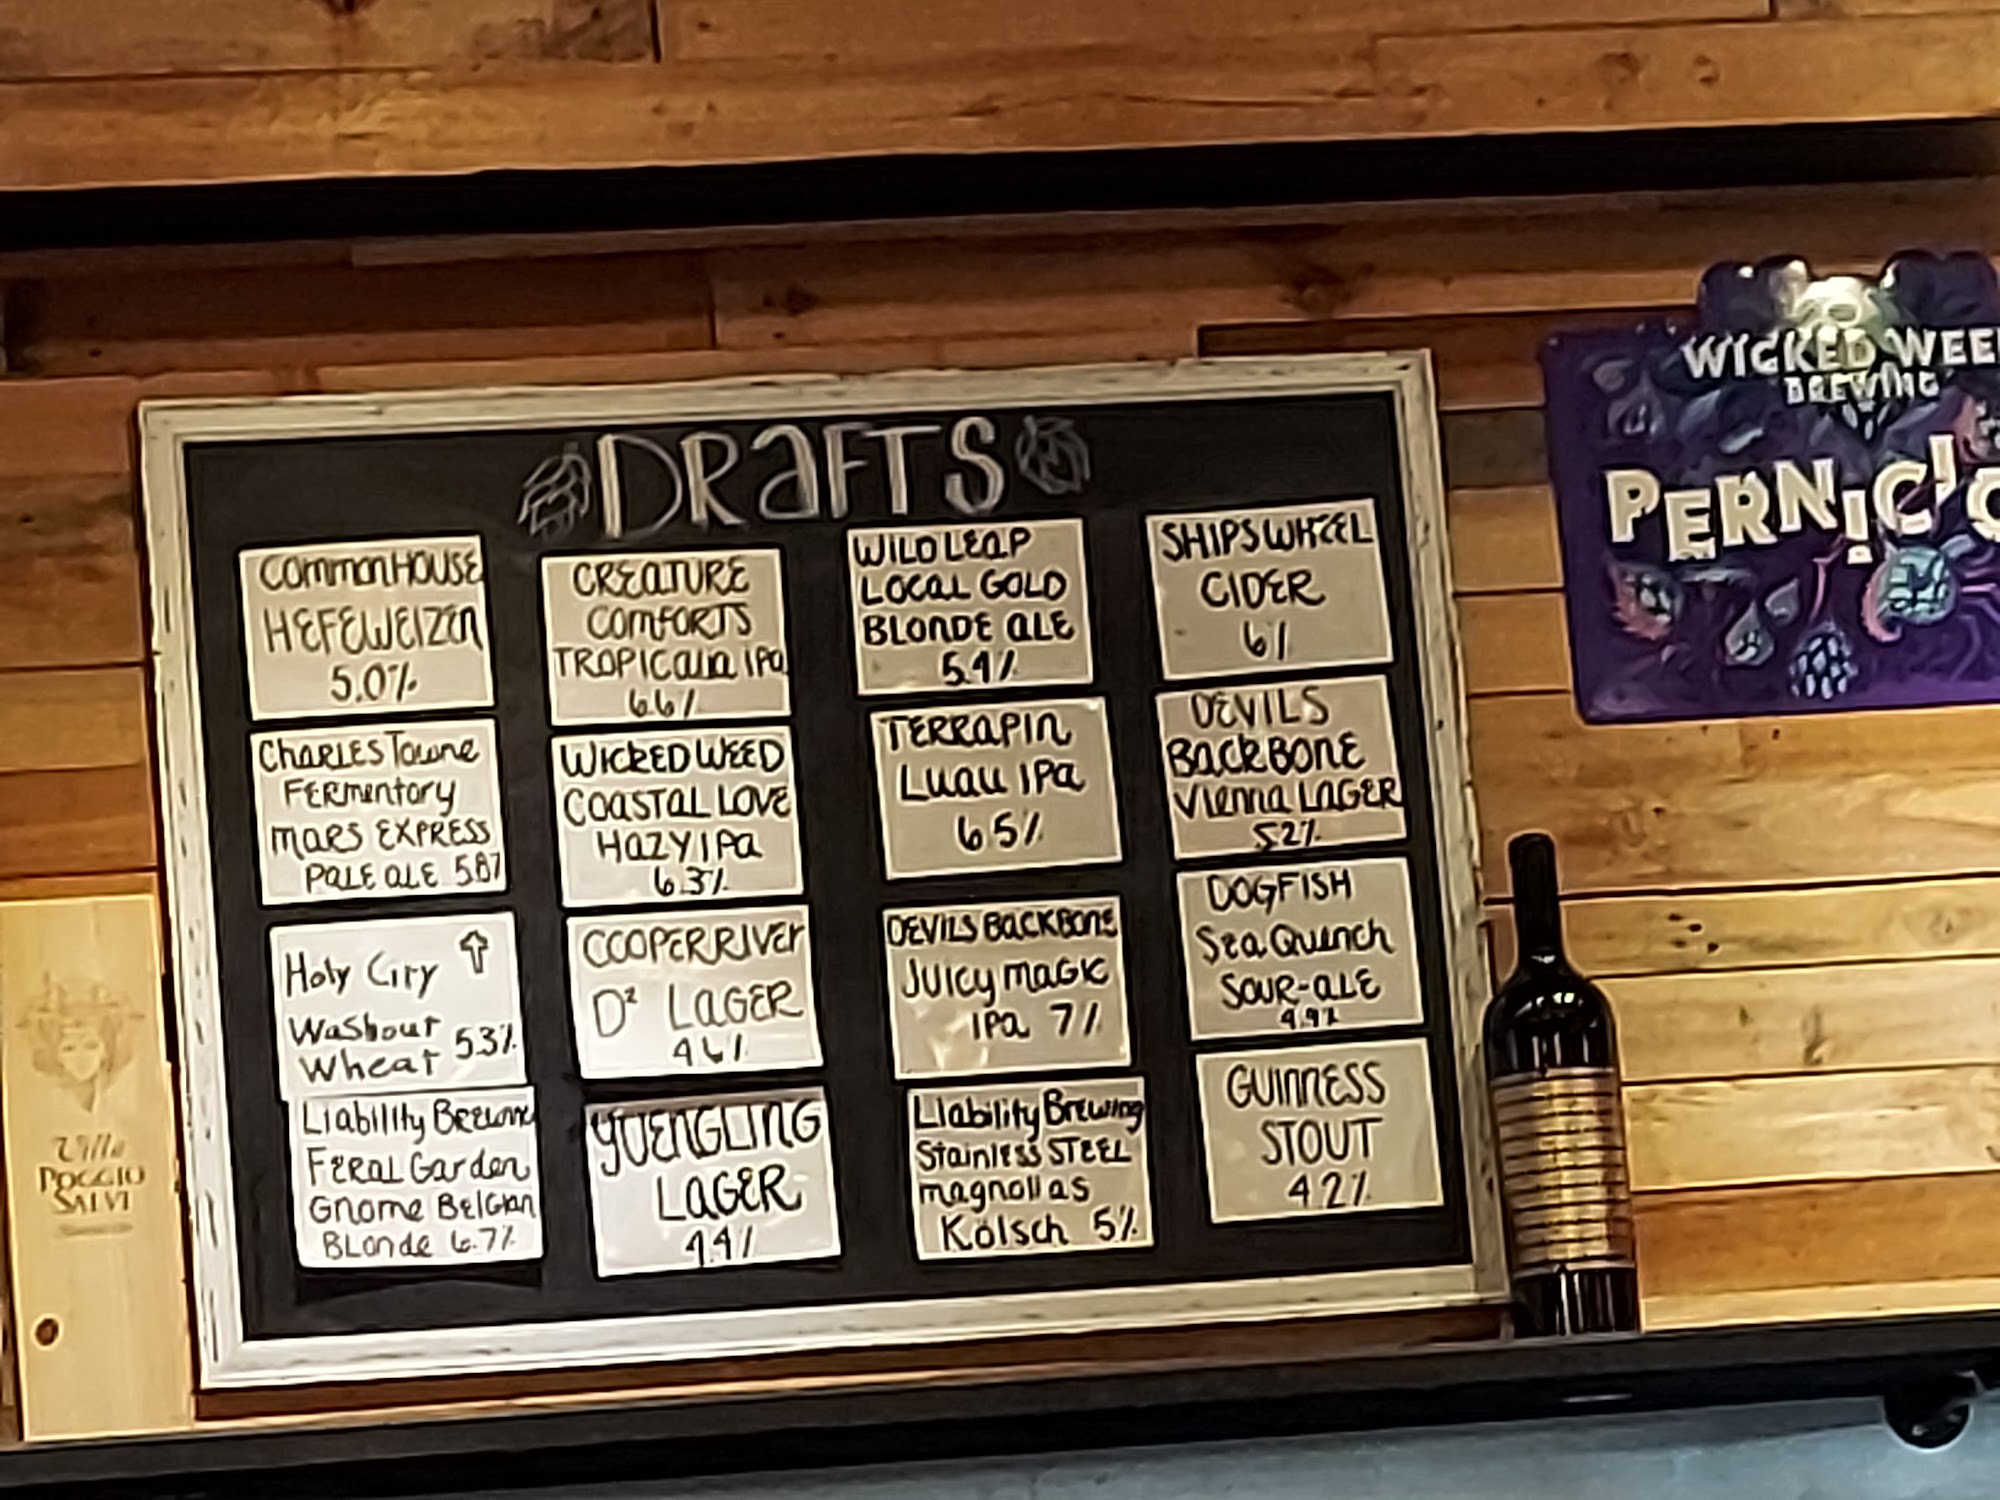 DRAFTS
COMMONHOUSE
HEFEWEIZEN
5.0%
CHARLES TOWNE
FERMENTORY
MARS EXPRESS
PALE ALE 5.8%
Holy City
Washout
Wheat 5.3%
Liability Brewing
Feral Garden
Gnome Belgian
Blonde 6.7%
CREATURE
COMFORTS
TROPICALIA IPA
6.6%
WICKED WEED
COASTAL LOVE
HAZY IPA
6.3%
COOPERRIVER
D² LAGER
4.6%
YUENGLING
LAGER
4.4%
WILD LEAP
LOCAL GOLD
BLONDE ALE
5.4%
TERRAPIN
LUAU IPA
6.5%
DEVILS BACKBONE
JUICY MAGIC
IPA 7%
Liability Brewing
Stainless STEEL
magnolias
Kölsch 5%
SHIPSWHEEL
CIDER
6%
DEVILS
BACKBONE
VIENNA LAGER
5.2%
DOGFISH
SeaQuench
SOUR-ALE
4.9%
GUINNESS
STOUT
4.2%
WICKED WEE
BREWING
PERNICIO
Villa
POGGIO
SALVI